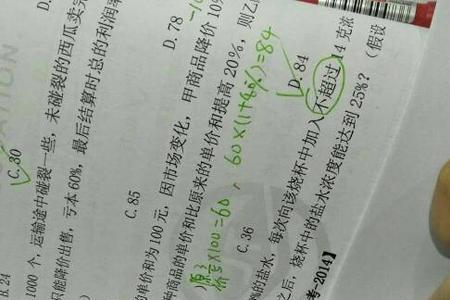 C. 30
D.
B. 24
1000 个，运输途中碰裂一些，未碰裂的西瓜卖完
只能降价出售，亏本 60%，最后结算时总的利润率
C. 85
D. 78
单价和为 100 元，因市场变化，甲商品降价 10%
种商品的单价和比原来的单价和提高 20%，则乙
×100=60，60×(1+40%)=84
C. 36
D. 84
的盐水，每次向该烧杯中加入不超过 14 克浓
之后，烧杯中的盐水浓度能达到 25%？（假设
考-2014】